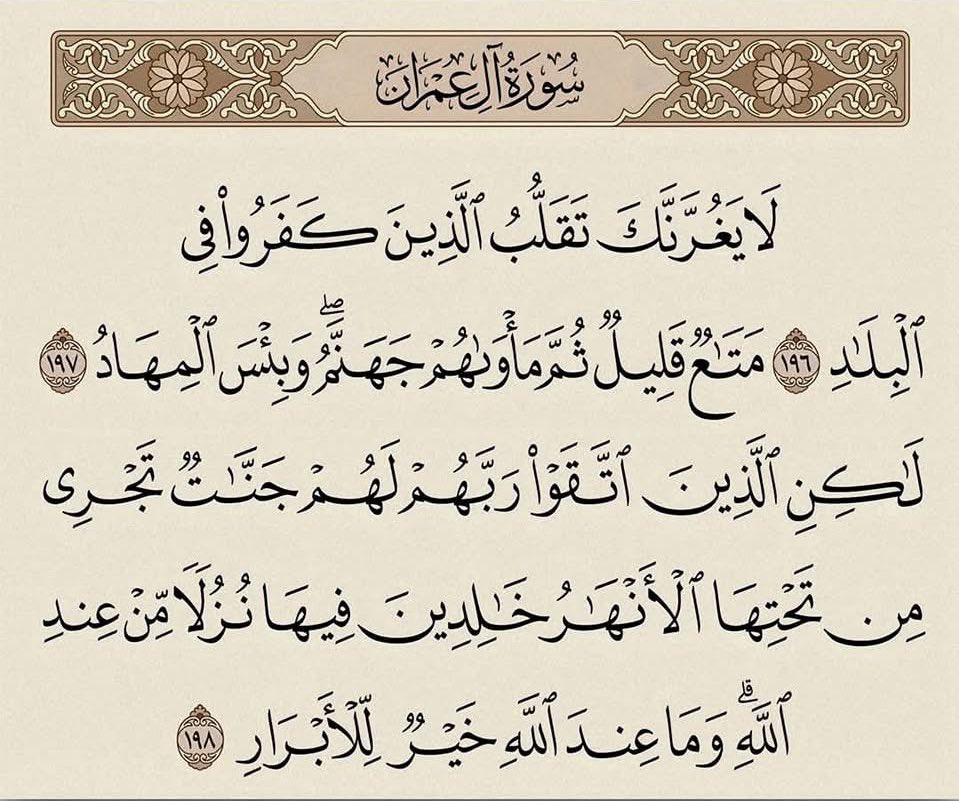 سُورَةُ آلِ عِمْرَان
لَا يَغُرَّنَّكَ تَقَلُّبُ ٱلَّذِينَ كَفَرُوا۟ فِى
ٱلْبِلَٰدِ ١٩٦ مَتَٰعٌ قَلِيلٌ ثُمَّ مَأْوَىٰهُمْ جَهَنَّمُ ۖ وَبِئْسَ ٱلْمِهَادُ ١٩٧
لَٰكِنِ ٱلَّذِينَ ٱتَّقَوْا۟ رَبَّهُمْ لَهُمْ جَنَّٰتٌ تَجْرِى
مِن تَحْتِهَا ٱلْأَنْهَٰرُ خَٰلِدِينَ فِيهَا نُزُلًا مِّنْ عِندِ
ٱللَّهِ ۗ وَمَا عِندَ ٱللَّهِ خَيْرٌ لِّلْأَبْرَارِ ١٩٨